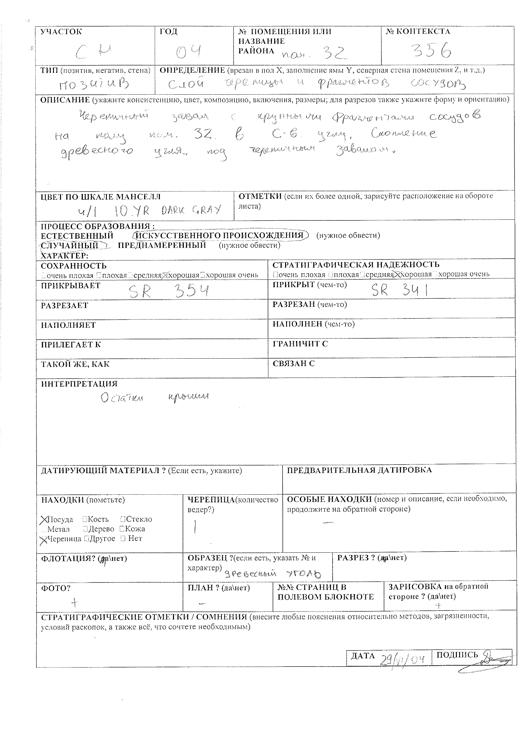 УЧАСТОК ГОД № ПОМЕЩЕНИЯ ИЛИ НАЗВАНИЕ РАЙОНА № КОНТЕКСТА
СН 04 пом. 32 356
ТИП (позитив, негатив, стена) ОПРЕДЕЛЕНИЕ (врезан в пол X, заполнение ямы Y, северная стена помещения Z, и т.д.)
позитив слой черепицы и фрагментов сосудов
ОПИСАНИЕ (укажите консистенцию, цвет, композицию, включения, размеры; для разрезов также укажите форму и ориентацию)
Черепичный завал с крупными фрагментами сосудов
на полу пом. 32 в С-в углу. Скопление
древесного угля под черепичным завалом.
ЦВЕТ ПО ШКАЛЕ МАНСЕЛЛ ОТМЕТКИ (если их более одной, зарисуйте расположение на обороте
листа)
4/1 10 YR DARK GRAY
ПРОЦЕСС ОБРАЗОВАНИЯ :
ЕСТЕСТВЕННЫЙ ИСКУССТВЕННОГО ПРОИСХОЖДЕНИЯ (нужное обвести)
СЛУЧАЙНЫЙ ПРЕДНАМЕРЕННЫЙ (нужное обвести)
ХАРАКТЕР:
СОХРАННОСТЬ СТРАТИГРАФИЧЕСКАЯ НАДЕЖНОСТЬ
очень плохая плохая средняя хорошая хорошая очень очень плохая плохая средняя хорошая хорошая очень
ПРИКРЫВАЕТ SR 354 ПРИКРЫТ (чем-то) SR 341
РАЗРЕЗАЕТ РАЗРЕЗАН (чем-то)
НАПОЛНЯЕТ НАПОЛНЕН (чем-то)
ПРИЛЕГАЕТ К ГРАНИЧИТ С
ТАКОЙ ЖЕ, КАК СВЯЗАН С
ИНТЕРПРЕТАЦИЯ
Остатки крыши
ДАТИРУЮЩИЙ МАТЕРИАЛ ? (Если есть, укажите) ПРЕДВАРИТЕЛЬНАЯ ДАТИРОВКА
НАХОДКИ (пометьте) ЧЕРЕПИЦА(количество ведер?) ОСОБЫЕ НАХОДКИ (номер и описание, если необходимо, продолжите на обратной стороне)
Посуда Кость Стекло 1 –
Метал Дерево Кожа
Черепица Другое Нет
ФЛОТАЦИЯ? (да\нет) ОБРАЗЕЦ ?(если есть, указать № и характер) древесный уголь РАЗРЕЗ ? (да\нет)
ФОТО? ПЛАН ? (да\нет) №№ СТРАНИЦ В ПОЛЕВОМ БЛОКНОТЕ ЗАРИСОВКА на обратной стороне ? (да\нет)
+ – +
СТРАТИГРАФИЧЕСКИЕ ОТМЕТКИ / СОМНЕНИЯ (внесите любые пояснения относительно методов, загрязненности,
условий раскопок, а также всё, что сочтете необходимым)
ДАТА ПОДПИСЬ